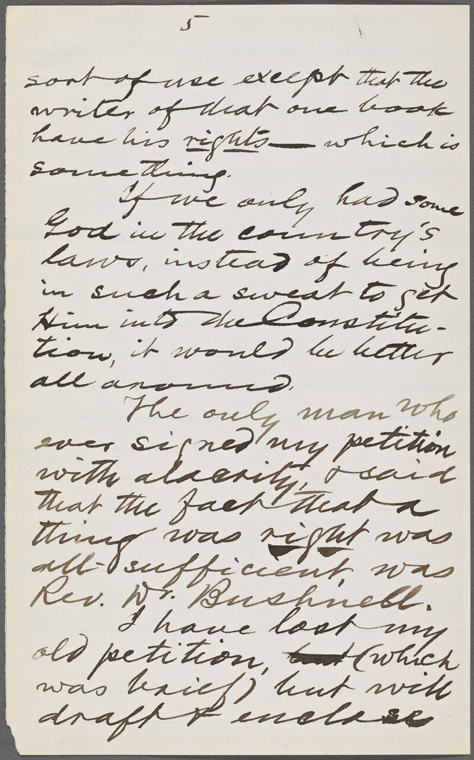 5
sort of use except that the
writer of that one book
have his rights — which is
something.
If we only had some
God in the country's
laws, instead of being
in such a sweat to get
Him into the Constitu-
tion, it would be better
all around.
The only man who
ever signed my petition
with alacrity, & said
that the fact that a
thing was right was
all-sufficient, was
Rev. Dr. Bushnell.
I have lost my
old petition, (which
was brief) but will
draft & enclose